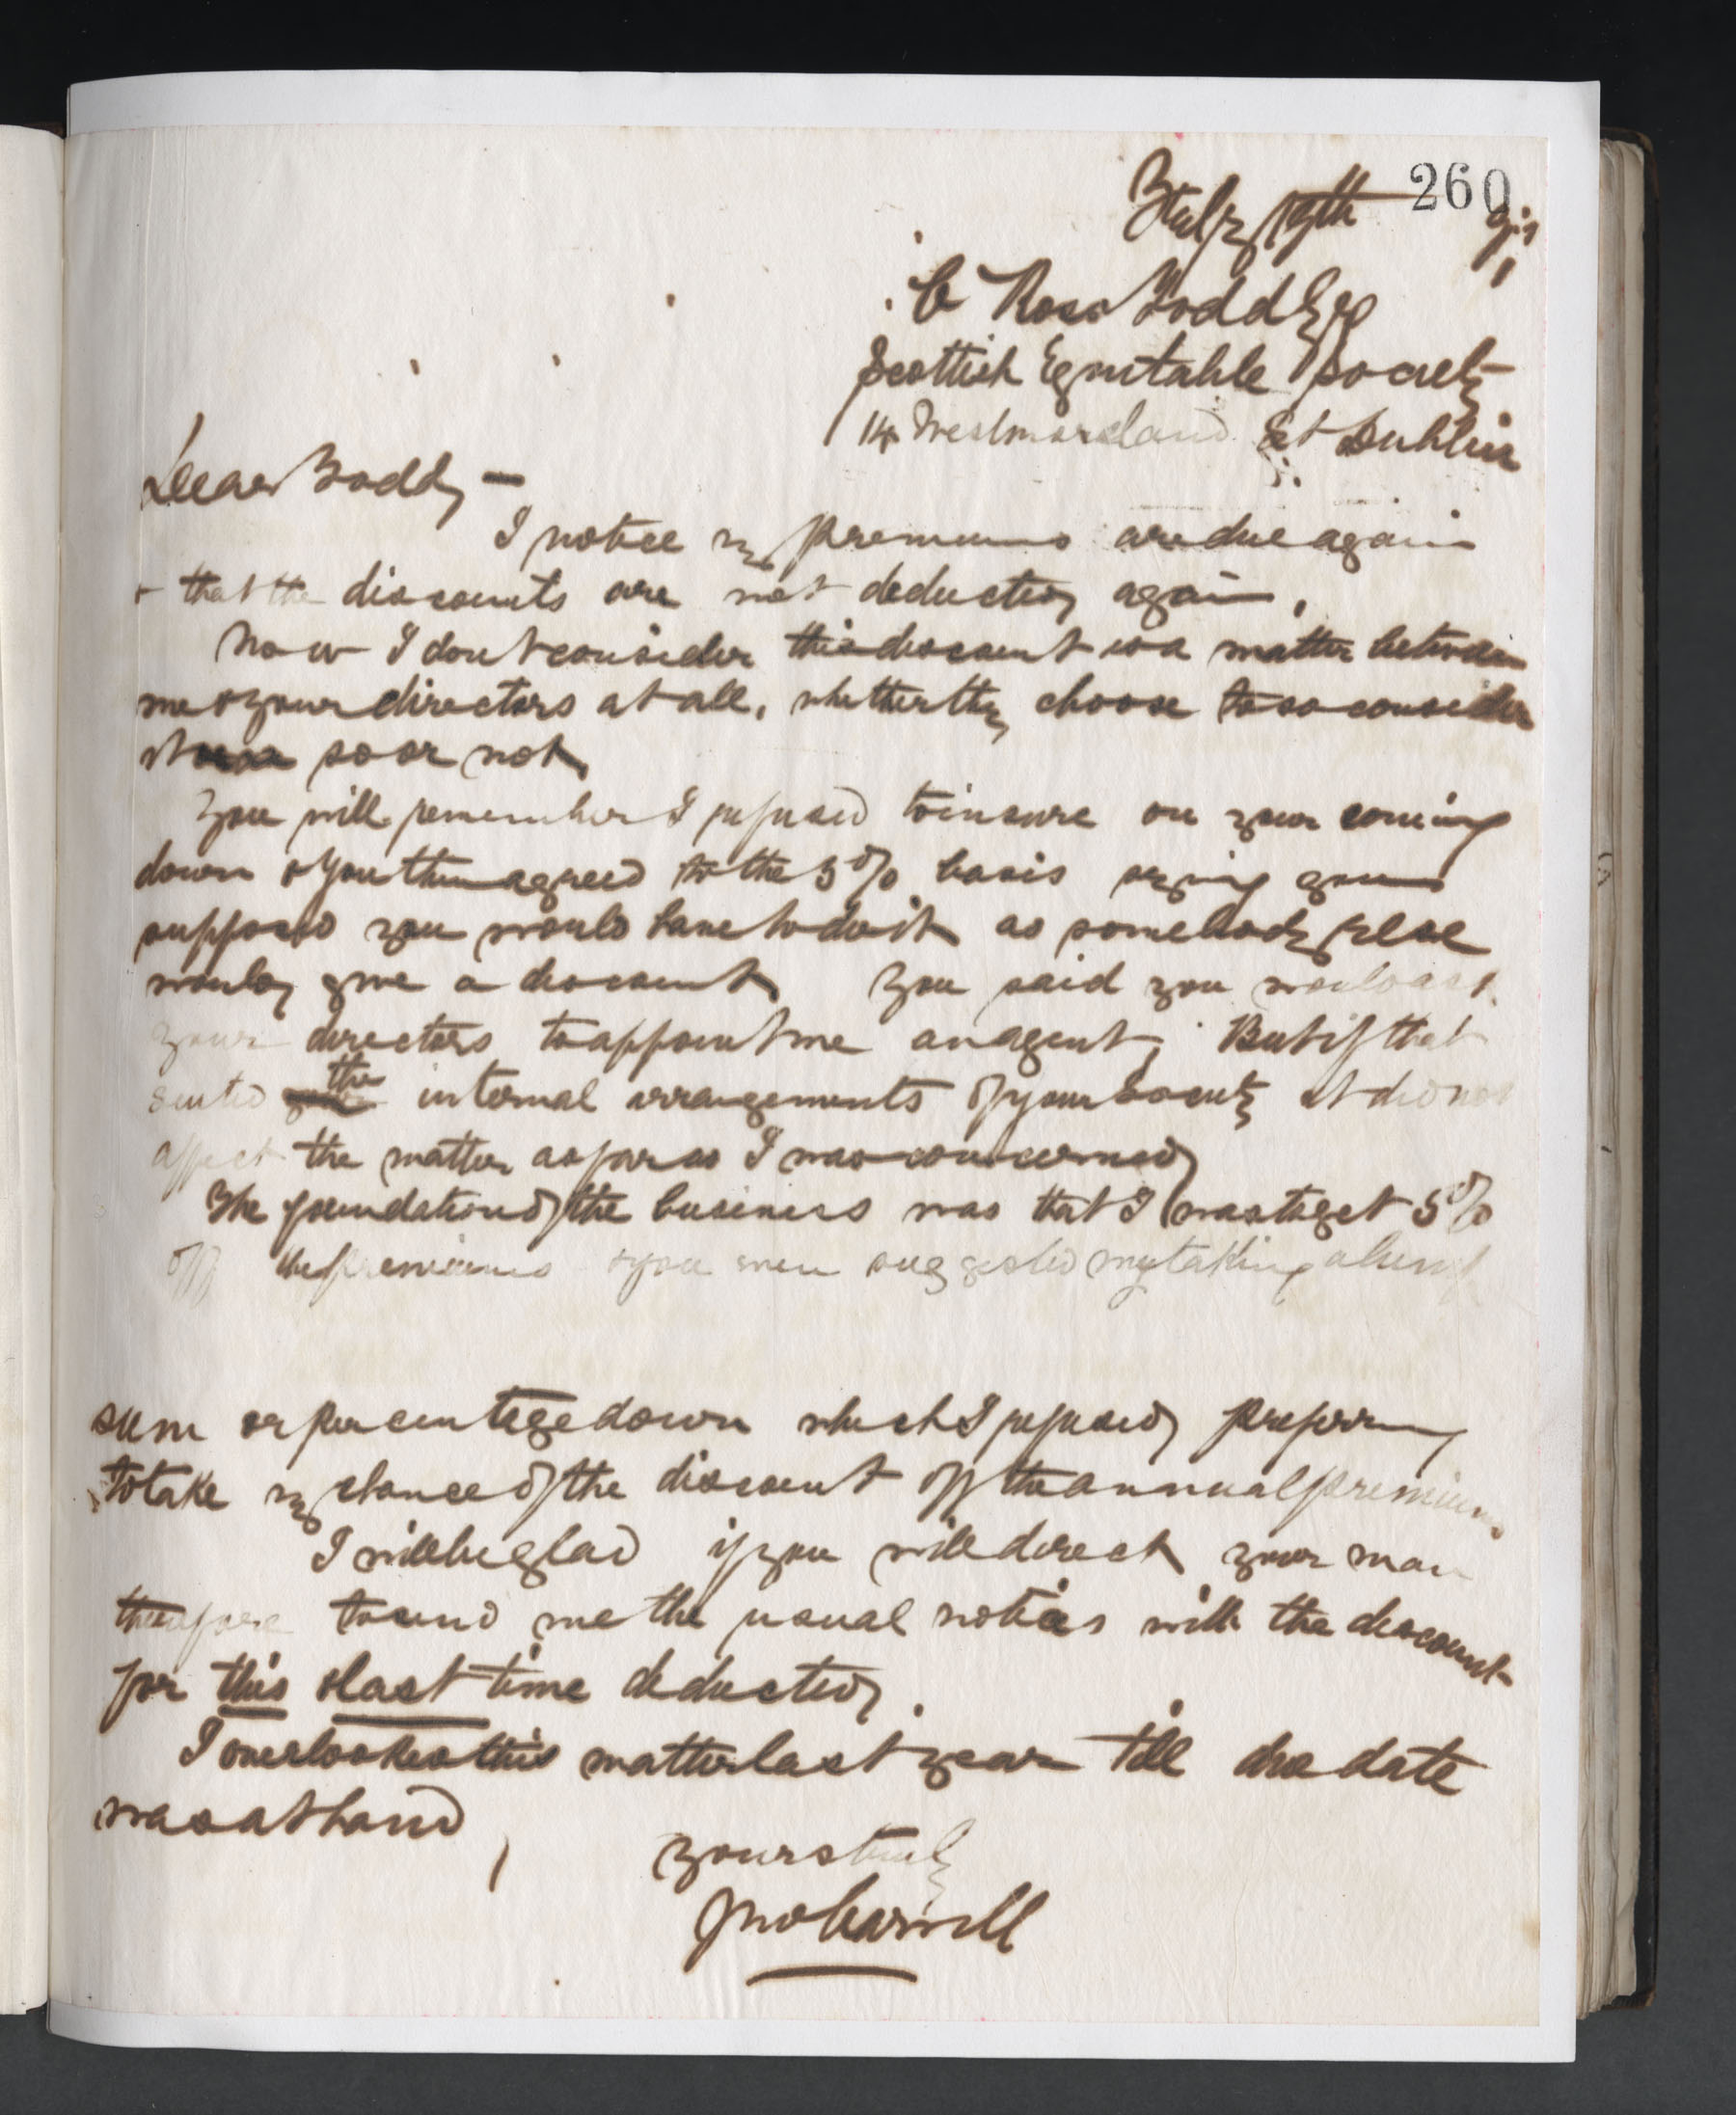 260
July 19th 91
C Ross Todd Esq
Scottish Equitable Society
14 Westmoreland St Dublin
Dear Todd,—
I notice my premiums are due again
+ that the discounts are not deducted again.
Now I dont consider this discount is a matter between
me & your directors at all, whether they choose to so consider
it so or not.
You will remember I refused to insure on your coming
down & you then agreed to the 5% basis saying you
supposed you would have to do it as somebody else
would give a discount. You said you would ask
your directors to appoint me an agent. But if that
suited the internal arrangements of your Society it did not
affect the matter as far as I was concerned
The foundation of the business was that I was to get 5%
off the premiums & you even suggested my taking a lump
sum or percentage down which I refused, preferring
to take my chance of the discount off the annual premiums
I will be glad if you will direct your man
therefore to send me the usual notices with the discount
for this & last time deducted.
I overlooked this matter last year till the date
was at hand,
Yours truly
Jno Carroll